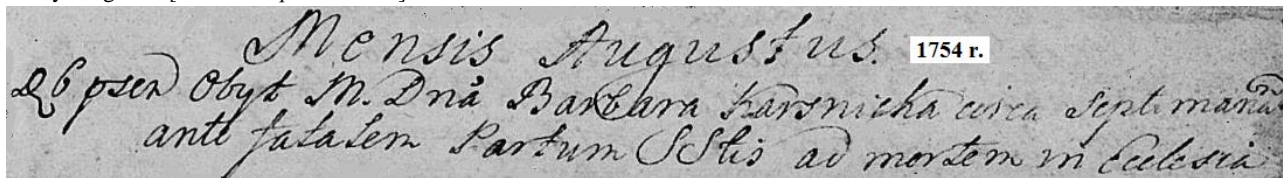 Mensis Augustus. 1754 r.
D 6 psen Obyt M. Dna Barbara Karsnicka circa septimanam
ante fatalem Partum SStis ad mortem in Ecclesia